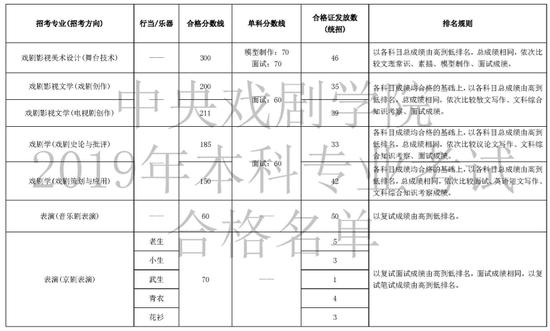 招考专业(招考方向) 行当/乐器 合格分数线 单科分数线 合格证发放数
(统招) 排名规则
戏剧影视美术设计(舞台技术) —— 300 模型制作：70
面试：70 46 以各科目总成绩由高到低排名。总成绩相同，依次比
较文面常识、素描、模型制作、面试成绩。
戏剧影视文学(戏剧创作) —— 200 面试：60 35 各科目成绩均合格的基础上，以各科目总成绩由高到
低排名。总成绩相同，依次比较散文写作、文科综合
知识考察、面试成绩。
戏剧影视文学(电视剧创作) —— 211 39
戏剧学(戏剧史论与批评) —— 185 面试：60 33 各科目成绩均合格的基础上，以各科目总成绩由高到
低排名。总成绩相同，依次比较议论文写作、文科综
合知识考察、面试成绩。
戏剧学(戏剧策划与应用) —— 150 42 各科目成绩均合格的基础上，以各科目总成绩由高到
低排名。总成绩相同，依次比较面试、英语短文写作、
文科综合知识考察成绩。
表演(音乐剧表演) —— 60 —— 50 以复试成绩由高到低排名。
表演(京剧表演) 老生 70 —— 5 以复试面试成绩由高到低排名。面试成绩相同，以复
试笔试成绩由高到低排名。
小生 3
武生 1
青衣 4
花衫 3
中央戏剧学院
2019年本科专业考试
合格名单